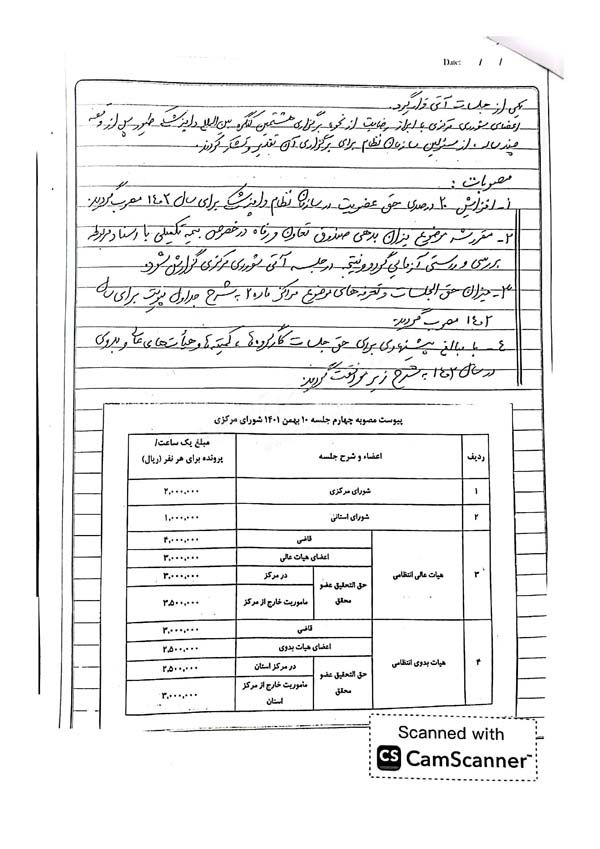 Date: / /
یکی از جلسات آتی قرار گیرد.
اعضای شورای مرکزی با ابراز رضایت از نحوه برگزاری هشتمین کنگره بین المللی دامپزشکی طیور پس از وقفه
چند ساله از مسئولین سازمان نظام برای برگزاری آن تقدیر و تشکر کردند.
مصوبات :
۱- افزایش ۲۰ درصدی حق عضویت در سازمان نظام دامپزشکی برای سال ۱۴۰۲ مصوب گردید.
۲- مقرر شد موضوع میزان بدهی صندوق تعاون و رفاه در خصوص بیمه تکمیلی با اسناد مربوطه
بررسی و راستی آزمایی گردد و نتیجه در جلسه آتی شورای مرکزی گزارش شود.
۳- میزان حق الجلسات و تعرفه های موضوع مراکز ماده ۲ به شرح جداول پیوست برای سال
۱۴۰۲ مصوب گردید.
۴- با مبالغ پیشنهادی برای حق جلسات کارگروه ها، کمیته ها و هیأت های عالی و بدوی
در سال ۱۴۰۲ به شرح زیر موافقت گردید:
پیوست مصوبه چهارم جلسه ۱۰ بهمن ۱۴۰۱ شورای مرکزی
ردیف اعضاء و شرح جلسه مبلغ یک ساعت/
پرونده برای هر نفر (ریال)
۱ شورای مرکزی ۲,۰۰۰,۰۰۰
۲ شورای استانی ۱,۰۰۰,۰۰۰
۳ هیات عالی انتظامی قاضی ۴,۰۰۰,۰۰۰
اعضای هیات عالی ۳,۰۰۰,۰۰۰
حق التحقیق عضو محقق در مرکز ۳,۰۰۰,۰۰۰
ماموریت خارج از مرکز ۳,۵۰۰,۰۰۰
۴ هیات بدوی انتظامی قاضی ۳,۰۰۰,۰۰۰
اعضای هیات بدوی ۲,۵۰۰,۰۰۰
حق التحقیق عضو محقق در مرکز استان ۲,۵۰۰,۰۰۰
ماموریت خارج از مرکز استان ۳,۰۰۰,۰۰۰
Scanned with
CS CamScanner™